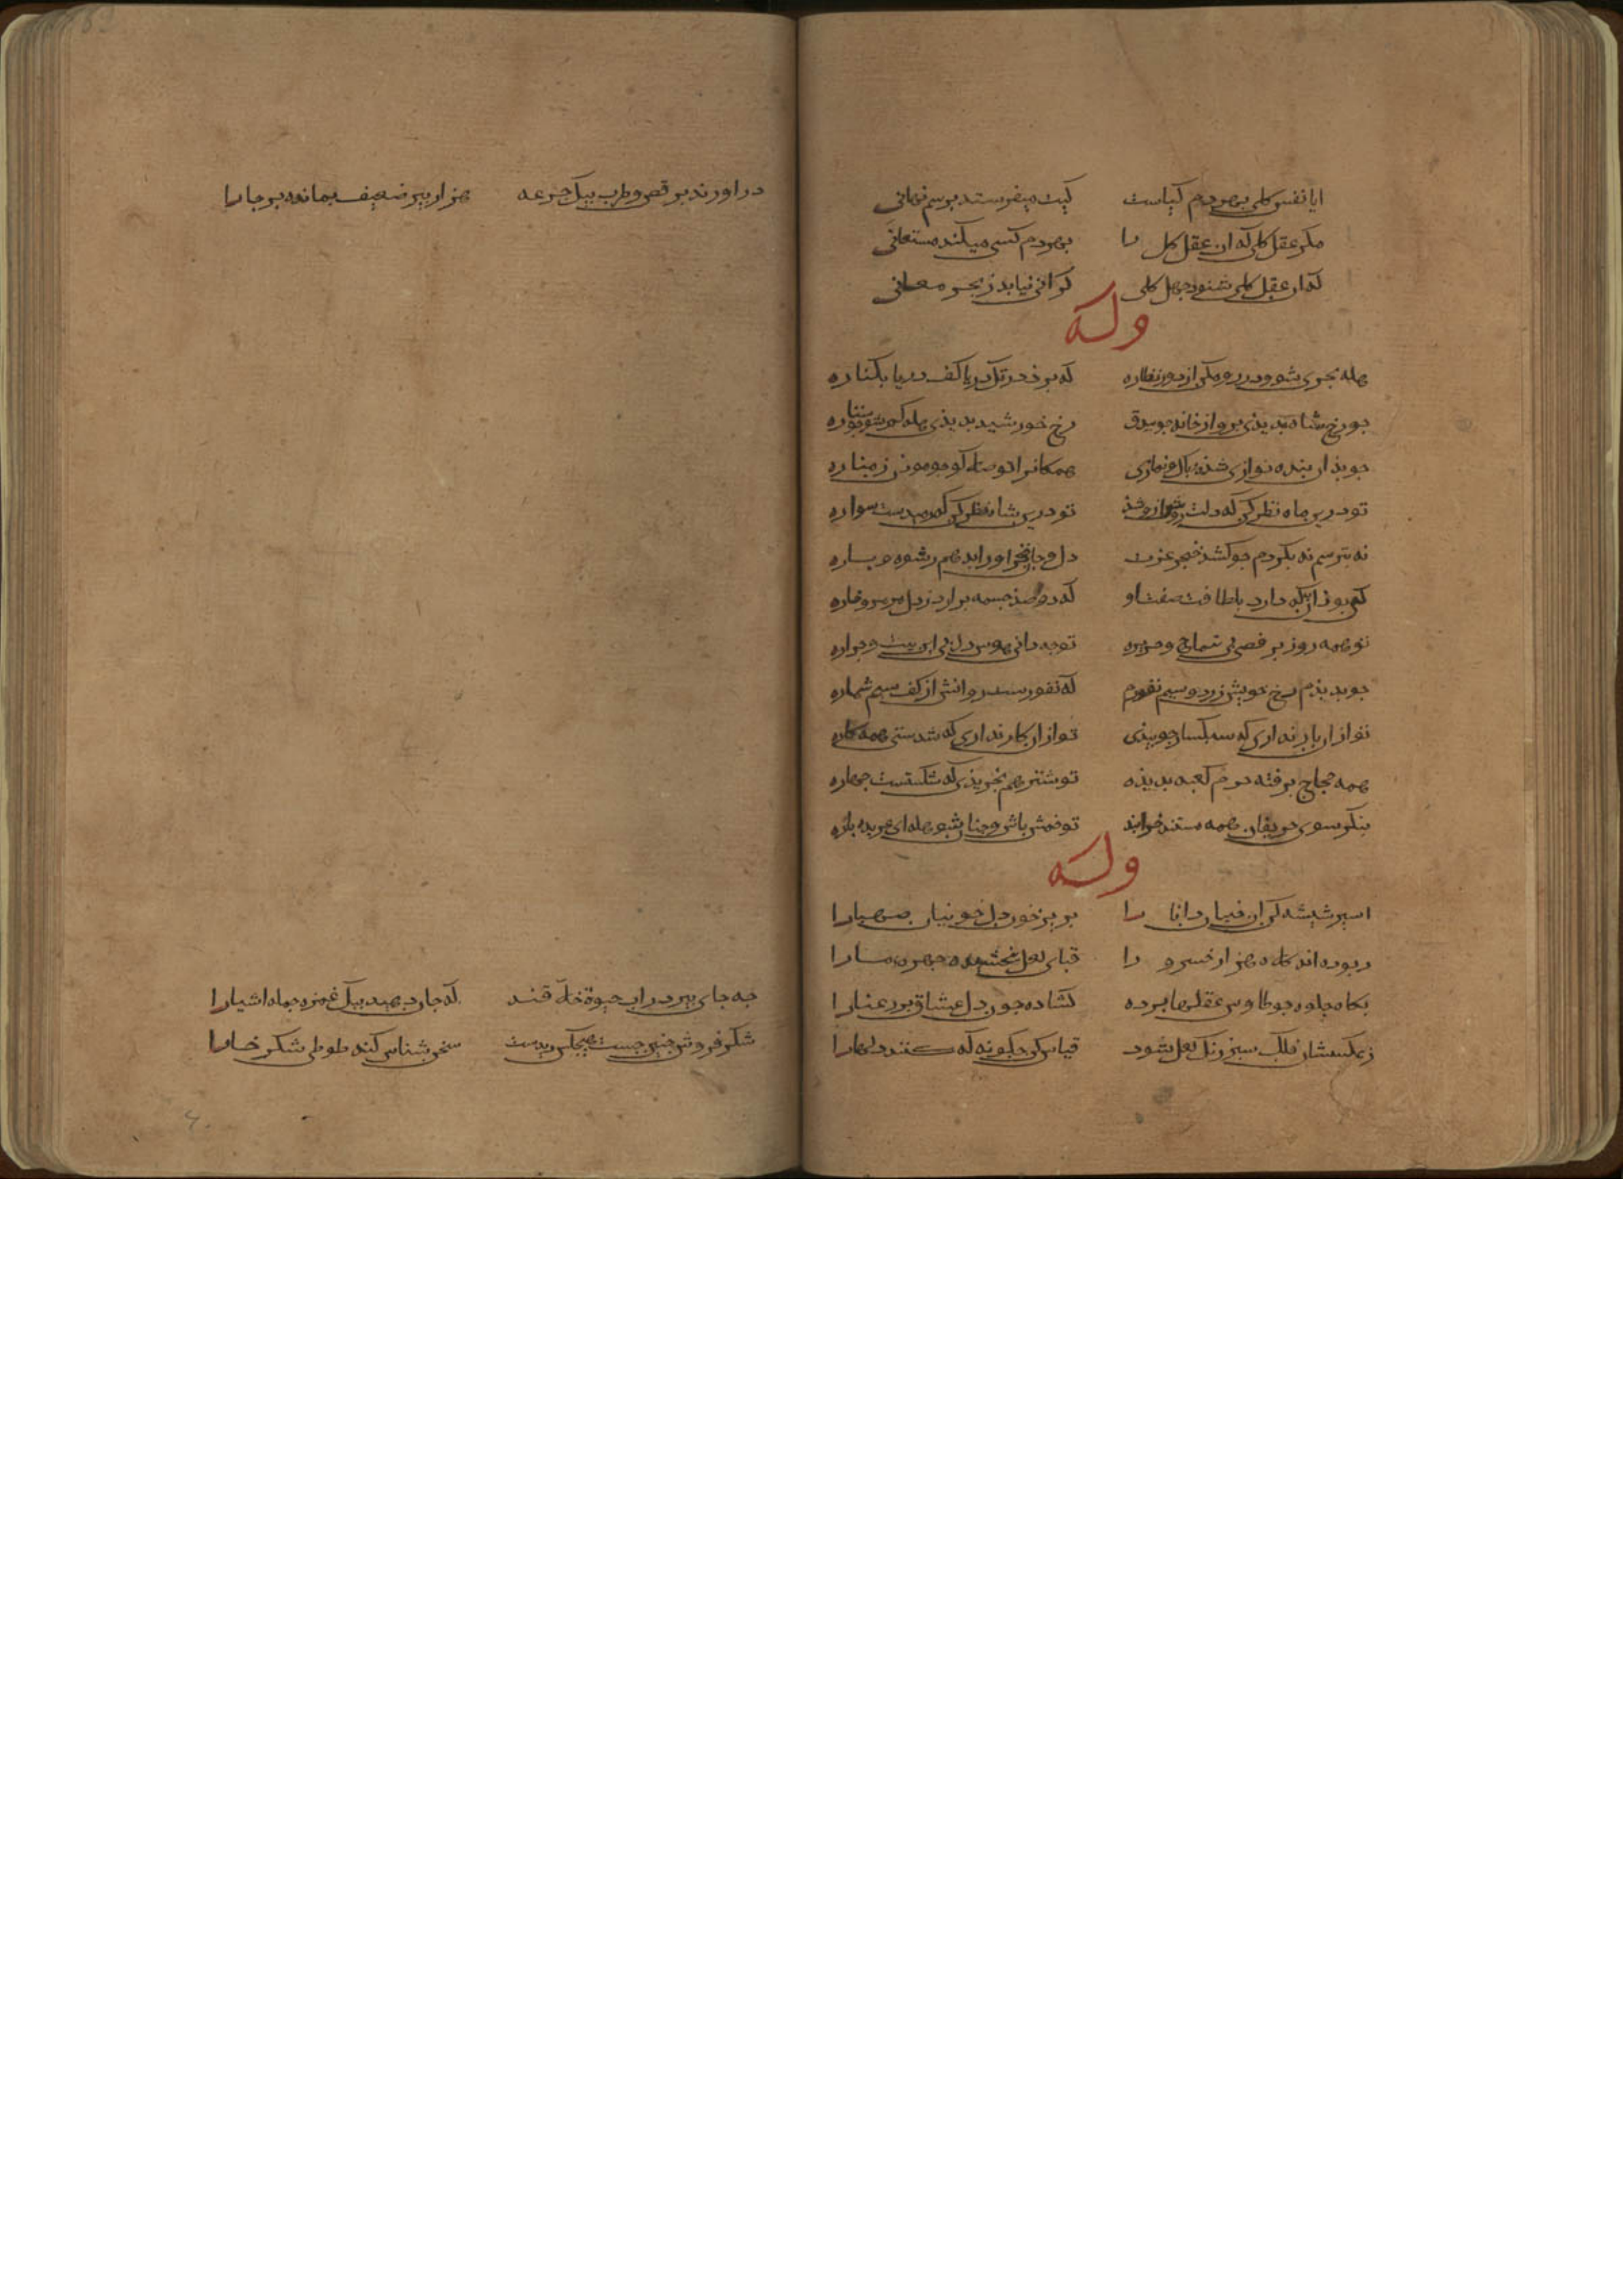 ایا نفس کلی بهر دم کیاست کیت میفرستد برسم نهانی
مکر عقل کلی که ان عقل کل را بهر دم کسی میکند مستعانی
که ان عقل کلی شود جهل کلی کر انی نیابد ز بحر معانی
وله
هله بحری شو و در رو مکن از دور نظاره که بود در تک دریا کف دریا بکناره
جو رخ شاه بدیذی برو از خانه جو بیذق رخ خورشید بدیذی هله کم شو جو ستاره
جو بذان بنده نوازی شذهٔ باک و نمازی همکانرا تو صلا کو جو موذن ز مناره
تو درین ماه نظر کن که دلت روشن ازو شذ تو درین شاه نظر کن که رسیدست سواره
نه بترسم نه بلرزم جو کشذ خنجر عزت
که بوذ اب که دارد بلطافت صفت او که دو صذ جشمه برارد ز دل مرمر و خاره
تو همه روز برقصی بی تتماج و حریره تو جه دانی هوس دل بی این بیت و حراره
جو بدیذم رخ خویش ز زر و سیم نفورم که نفورست روانش از کف سیم شماره
تو ازان بار نداری که سبکسار جو بیذی تو ازان کار نداری که شدستی همه کاره
همه حجاج برفته حرم کعبه بدیذه تو شتر هم نخریذی که شکستست مهاره
بنکر سوی حریفان همه مستند و خرابند تو خمش باش و جنان شو هله ای عربده باره
وله
اسیر شیشه کن ان جنیان دانا را بریز خون دل ان خونیان صهبا را
ربوده اند کلاه هزار خسرو را قبای لعل ببخشیده جهره ما را
بکاه جلوه جو طاوس عقلها برده کشاده جون دل عشاق بر رعنا را
ز عکسشان فلک سبز رنک لعل شود قیاس کن جکونه که کنند دلها را
در اورند برقص و طرب بیک جرعه هزار پیر ضعیف بمانده بر جا را
جه جای پیر در اب حیوة خلاق قند که جان دهند بیک غمزه جمله اشیا را
شکر فروش جنین جست هیجکس دیدست سخن شناس کند طوطی شکر خا را